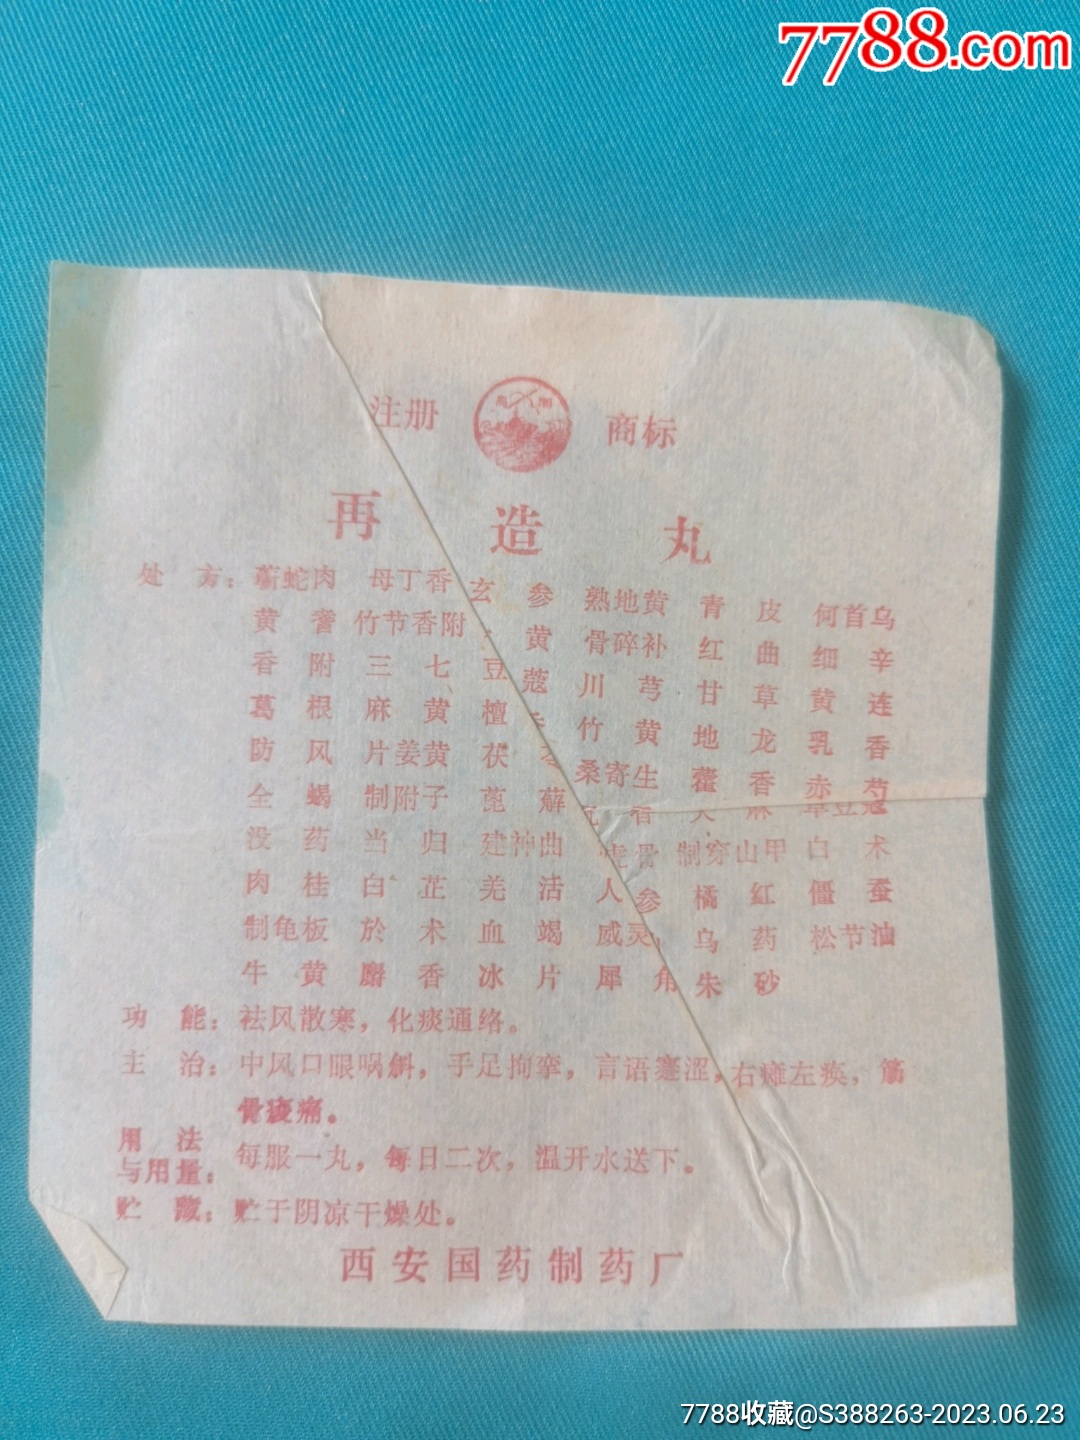 7788.com
注册 商标
再造丸
处方：蕲蛇肉 母丁香 玄参 熟地黄 青皮 何首乌
黄 竹节香附 黄 骨碎补 红曲 细辛
香附 三七 豆蔻 川芎 甘草 黄连
葛根 麻黄 檀 竹黄 地龙 乳香
防风 片姜黄 茯苓 桑寄生 藿香 赤芍
全蝎 制附子 萆薢
没药 当归 建神曲 虎骨 制穿山甲 白术
肉桂 白芷 羌活 人参 橘红 僵蚕
制龟板 於术 血竭 威灵 乌药 松节油
牛黄 麝香 冰片 犀角 朱砂
功能：祛风散寒，化痰通络。
主治：中风口眼㖞斜，手足拘挛，言语蹇涩，右瘫左痪，筋
骨痠痛。
用法
与用量：每服一丸，每日二次，温开水送下。
贮藏：贮于阴凉干燥处。
西安国药制药厂
7788收藏@S388263-2023.06.23